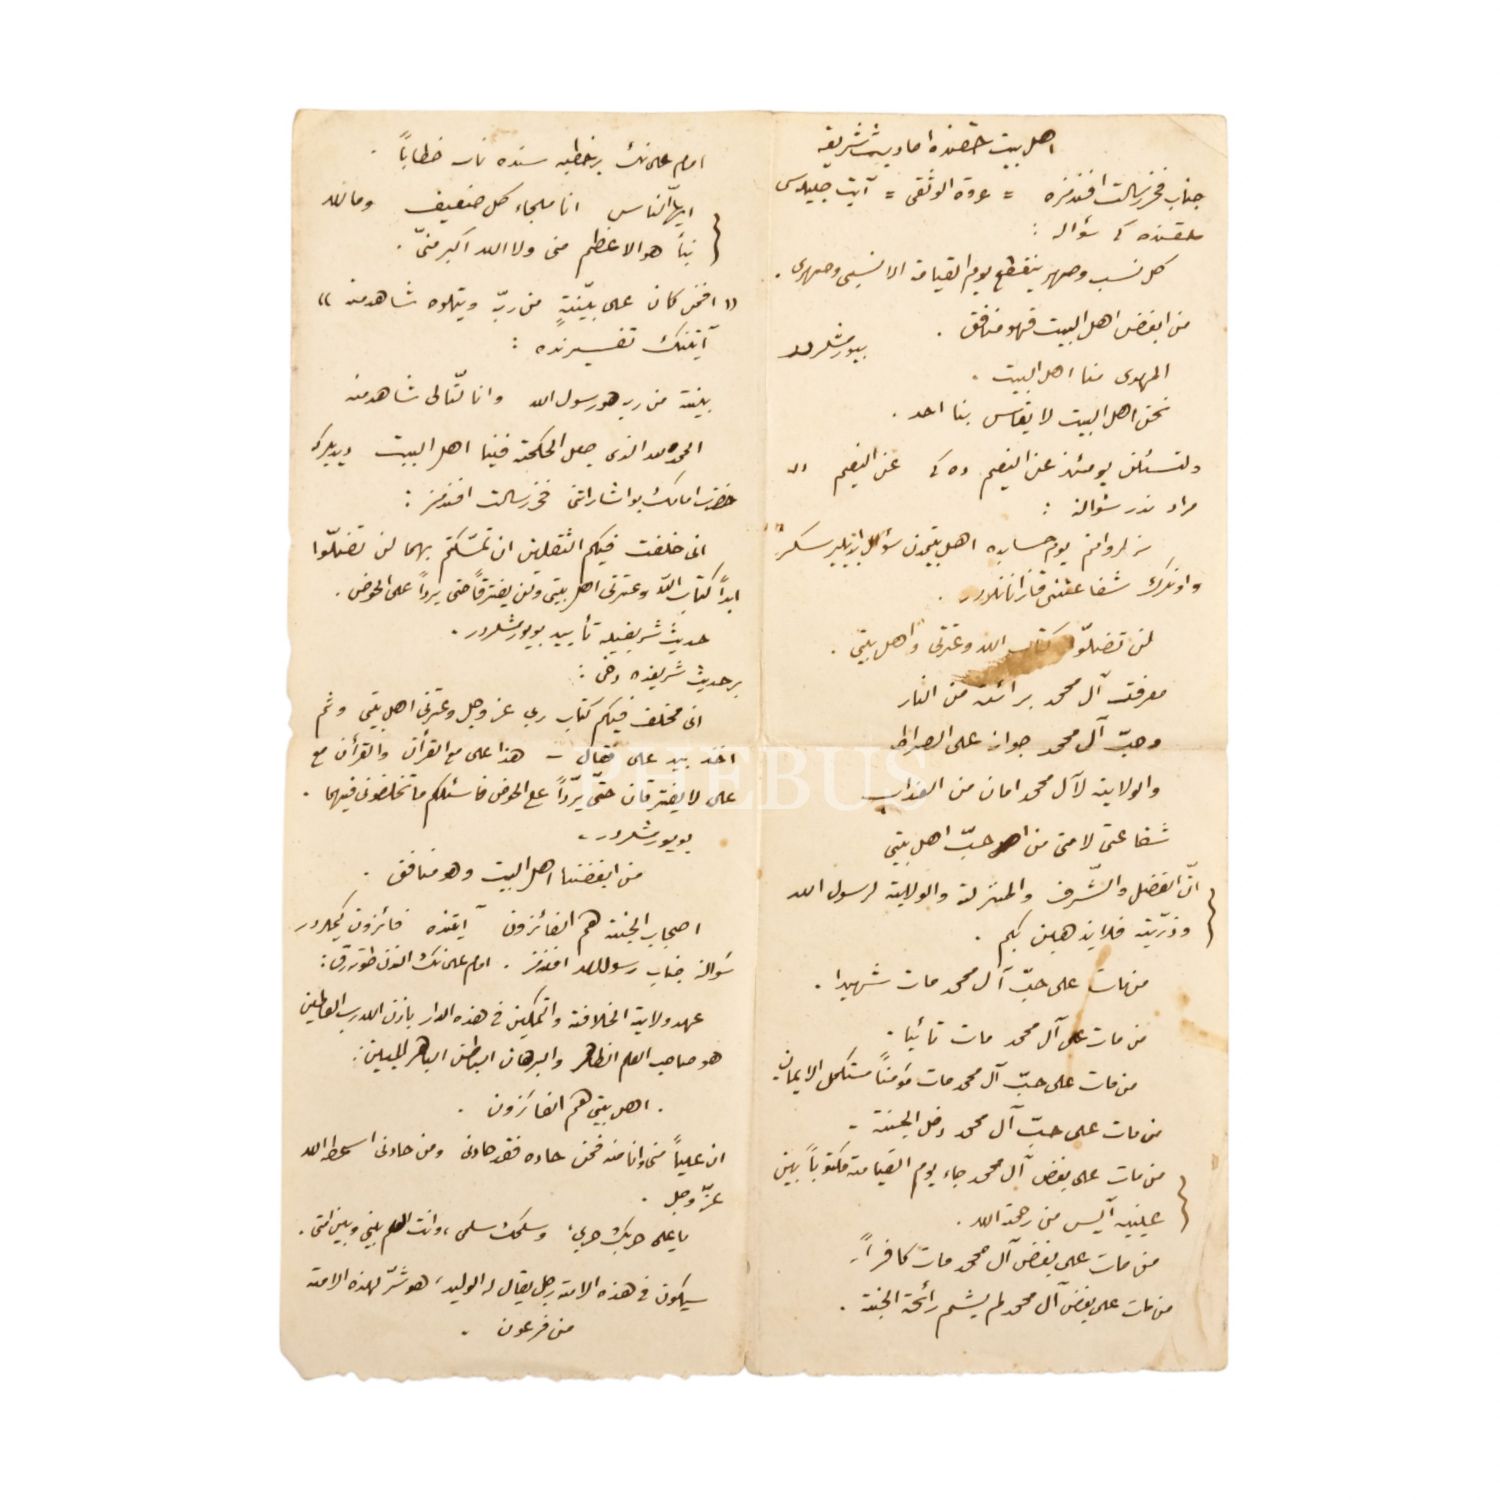 اهل بيت حقنده احاديث شريفه
جناب فخر رسالت افندمزه = عروة الوثقى = آيت جليله‌سى
حقنده كى سؤاله :
كل نسب وصهر ينقطع يوم القيامة الا نسبى وصهرى .
من ابغض اهل البيت فهو منافق . بيورمشلردر
المهدى منا اهل البيت .
نحن اهل البيت لا يقاس بنا احد .
ولتسئلن يومئذ عن النعيم ده كى عن النعيم دن
مراد ندر سؤالنه :
يوم حسابده اهل بيتمدن سؤال
و اونلرك شفاعتنى قزانانلردر .
لن تضلّوا كتاب الله وعترتى واهل بيتى .
معرفت آل محمد برائة من النار
وحبّ آل محمد جواز على الصراط
والولاية لآل محمد امان من العذاب
شفاعتى لامتى من احبّ اهل بيتى
انّ الفضل والشّرف والمنزلة والولاية لرسول الله
وذرّيته فلا يذهبن بكم .
من مات على حبّ آل محمد مات شهيدا .
من مات على آل محمد مات تائبا .
من مات على حبّ آل محمد مات مؤمناً مستكمل الايمان
من مات على حبّ آل محمد دخل الجنة .
من مات على بغض آل محمد جاء يوم القيامة مكتوباً بين
عينيه آيس من رحمة الله .
من مات على بغض آل محمد مات كافراً .
من مات على بغض آل محمد لم يشم رائحة الجنة .
امام على نك بر خطبه سنده ناس خطاباً .
ايها النّاس انا ملجاء كل ضعيف وما لله
نبأ هو الاعظم منى ولا الله اكبر منّى .
« افمن كان على بيّنةٍ من ربّه ويتلوه شاهد منه »
آيتنك تفسيرنده :
بينة من ربه هو رسول الله وانا لتّالى شاهد منه
الحمد لله الذى جعل الحكمة فينا اهل البيت
حضرت امامك بو اشاراتنى فخر رسالت افندمز :
انى خلفت فيكم الثقلين ان تمسّكتم بهما لن تضلّوا
ابداً كتاب الله وعترتى اهل بيتى ولن يفترقا حتى يردا على الحوض .
حديث شريفيله تأييد بويورمشلردر .
بر حديث شريفده دخى :
انى مخلف فيكم كتاب ربى عز وجل وعترتى اهل بيتى وثم
اخذ بيد على فقال - هذا على مع القرأن والقرأن مع
على لا يفترقان حتّى يردّا على الحوض فاسئلكم ما تخلفونى فيهما .
بويورمشلردر .
من ابغضنا اهل البيت وهو منافق .
اصحاب الجنة هم الفائزون آيتنده فائزون كيملردر
سؤالنه جناب رسول الله افندمز . امام على نك الندن طوتهرق :
عهد ولاية الخلافة والتمكين فى هذه الدار باذن الله رب العالمين
هو صاحب العلم الظاهر والبرهان الباطن الباهر المبين :
. اهل بيتى هم الفائزون .
ان علياً منى وانا منه فمن حاده فقد حادنى ومن حادنى اسخط الله
عزّ وجل .
يا على حربك حربى وسلمك سلمى ، وانت العلم بينى وبين امتى .
سيكون فى هذه الامة رجل يقال له الوليد ، هو شرّ لهذه الامة
من فرعون .
PHEBUS